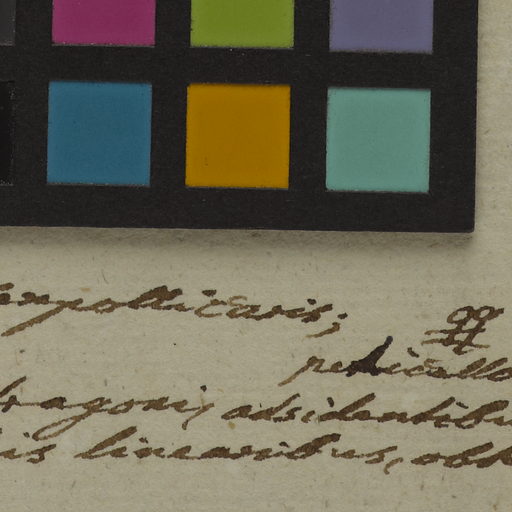 empollicaris;
pedicello
tragoni, absidentibu
is linearibus, obt